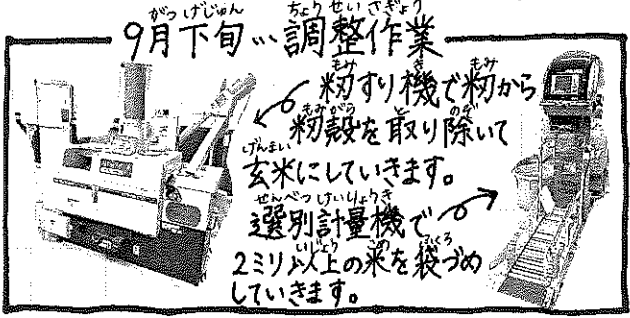 9月下旬…調整作業
籾すり機で籾から
籾殻を取り除いて
玄米にしていきます。
選別計量機で
2ミリ以上の米を袋づめ
していきます。